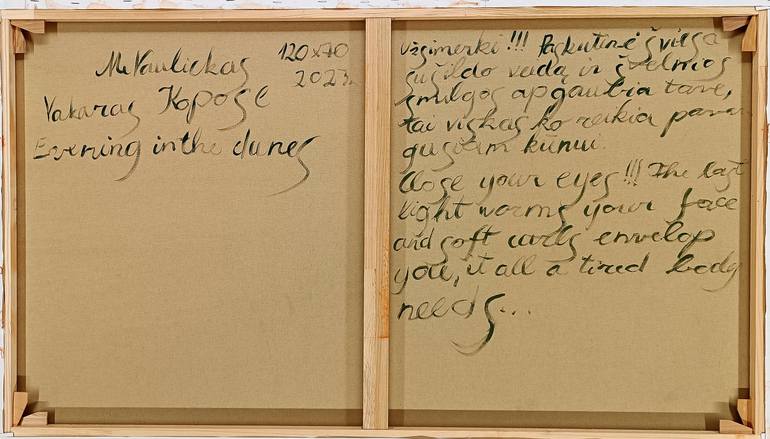 M. Vaulickas 120x70
2023.
Vakaras Kopose
Evening in the dunes
Užsimerki!!! Paskutinė šviesa
sušildo veidą ir švelnios
smulgos apgaubia tave,
tai viskas ko reikia pavar
gusiam kūnui.
Close your eyes!!! The last
light worms your face
and soft curls envelop
you, it all a tired body
needs...